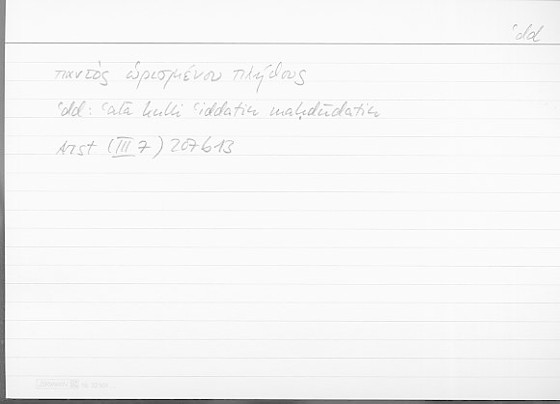 ʿdd
παντὸς ὡρισμένου πλήθους
ʿdd: ʿalā kulli ʿiddatin maḥdūdatin
Arst (III 7) 207b13